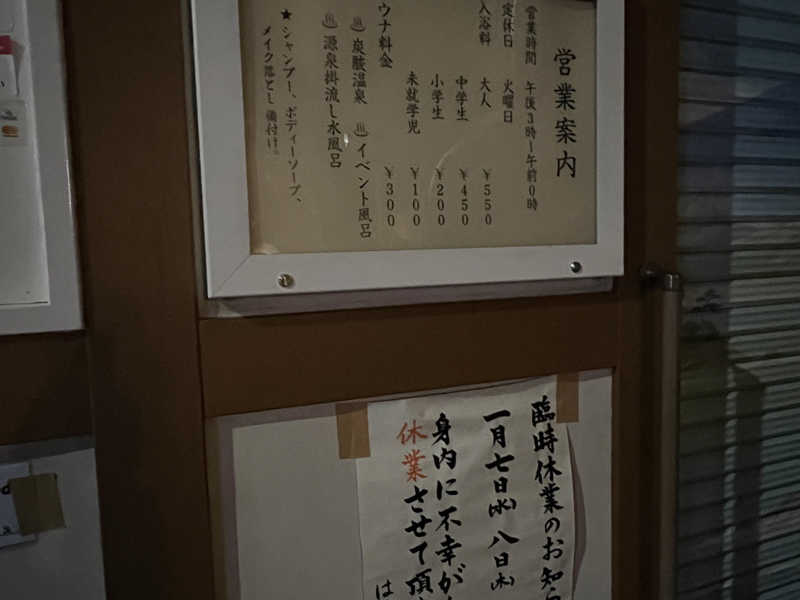 営業案内
営業時間 午後3時〜午前0時
定休日 火曜日
入浴料 大人 ¥550
中学生 ¥450
小学生 ¥200
未就学児 ¥100
ウナ料金 ¥300
♨ 炭酸温泉 ♨ イベント風呂
♨ 源泉掛流し水風呂
★ シャンプー、ボディーソープ、
メイク落とし備付け。
臨時休業のお知ら
一月七日(水) 八日(木)
身内に不幸が
休業させて頂
は